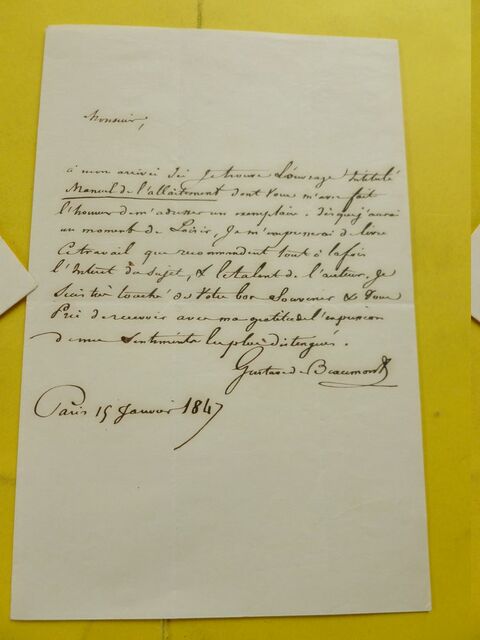 Monsieur,
à mon arrivée ici je trouve l'ouvrage intitulé
Manuel de l'allaitement dont vous m'avez fait
l'honneur de m'adresser un exemplaire. dès que j'aurai
un moment de loisir, je m'empresserai de lire
ce travail que recommandent tout à la fois
l'intérêt du sujet, & le talent de l'auteur. je
suis très touché de votre bon souvenir & vous
prie de recevoir avec ma gratitude l'expression
de mes sentiments les plus distingués.
Gustave de Beaumont
Paris 15 Janvier 1847